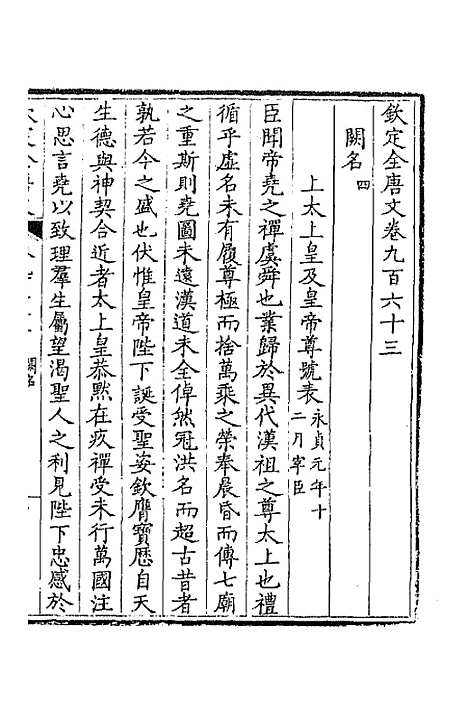 欽定全唐文卷九百六十三
闕名 四
上太上皇及皇帝尊號表 永貞元年十二月宰臣
臣聞帝堯之禪虞舜也業歸於異代漢祖之尊太上也禮
循乎虛名未有履尊極而捨萬乘之榮奉晨昏而傳七廟
之重斯則堯圖未遠漢道未全倬然冠洪名而超古昔者
孰若今之盛也伏惟皇帝陛下誕受聖姿欽膺寶歷自天
生德與神契合近者太上皇恭默在疚禪受未行萬國注
心思言堯以致理羣生屬望渴聖人之利見陛下忠感於
闕名